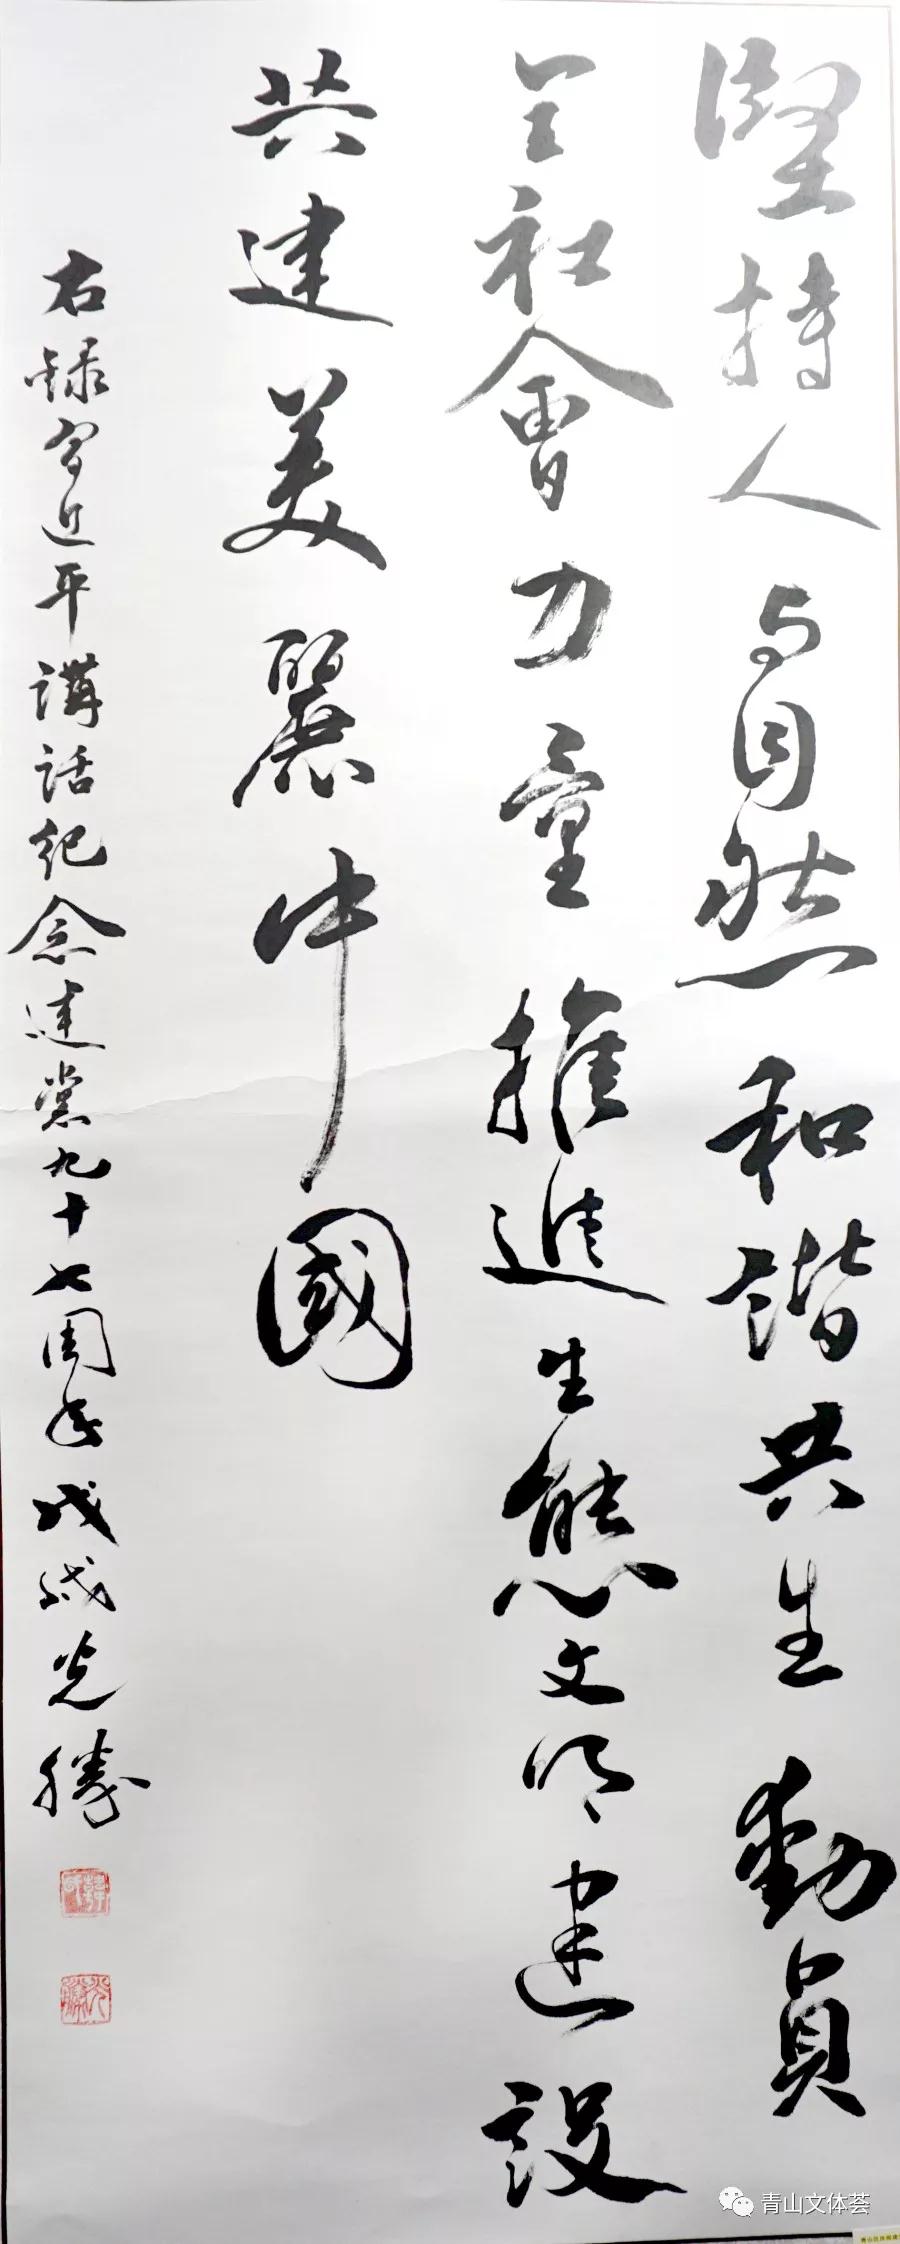 堅持人与自然和諧共生動員
全社會力量推進生態文明建設
共建美麗中國
右録習近平講話紀念建黨九十七周年戊戌光勝
光勝
青山文体荟